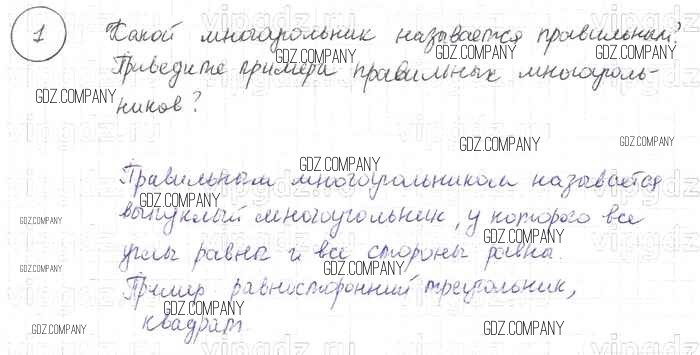 1 Какой многоугольник называется правильным?
Приведите примеры правильных многоуголь-
ников?
Правильным многоугольником называется
выпуклый многоугольник, у которого все
углы равны и все стороны равны.
Пример равносторонний треугольник,
квадрат
GDZ.COMPANY
GDZ.COMPANY
GDZ.COMPANY
GDZ.COMPANY
GDZ.COMPANY
GDZ.COMPANY
GDZ.COMPANY
GDZ.COMPANY
GDZ.COMPANY
GDZ.COMPANY
GDZ.COMPANY
GDZ.COMPANY
GDZ.COMPANY
GDZ.COMPANY